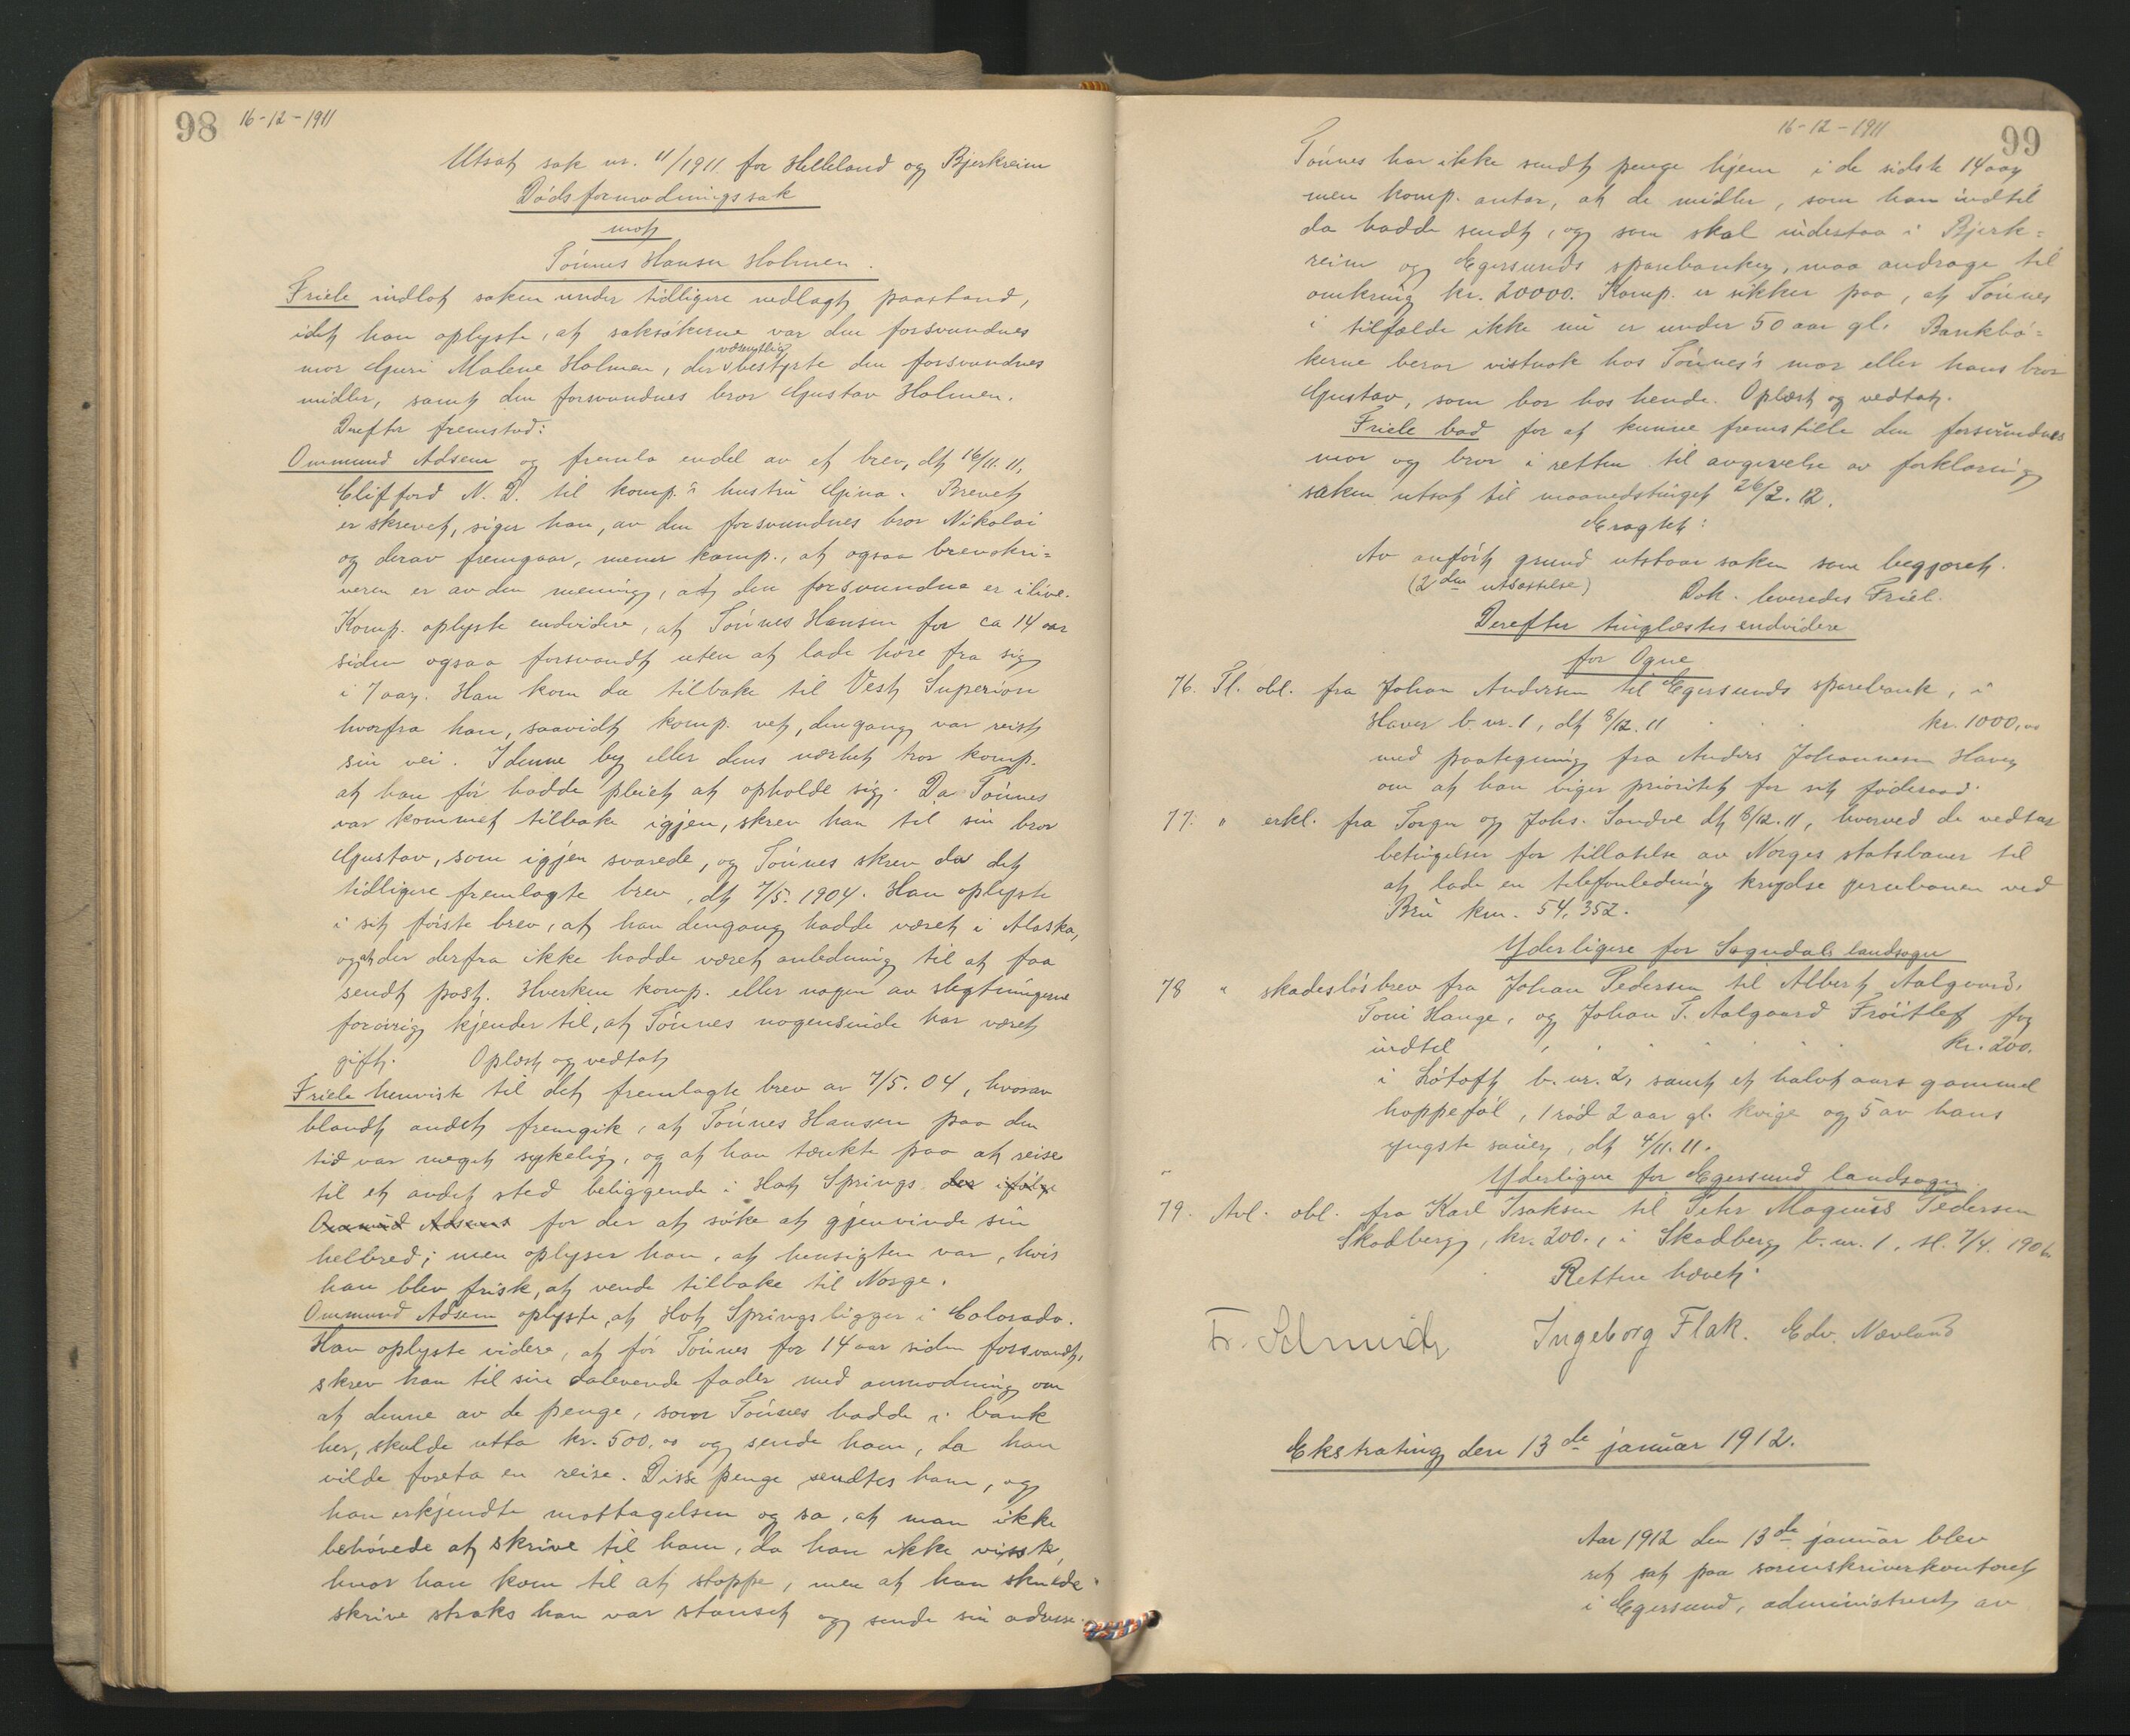 98 16-12-1911
Utsat sak nr. 11/1911 for Helleland og Bjerkreim
Dödsformodningssak
mot
Tönnes Hansen Holmen.
Friele indlot saken under tidligere nedlagt paastand,
idet han oplyste, at saksökerne var den forsvundnes
mor Guri Malene Holmen, der væsentlig bestyrte den forsvundnes
midler, samt den forsvundnes bror Gustav Holmen.
Derefter fremstod:
Ommund Adsem og fremla endel av et brev, dt 16/11. 11,
Clifford N. D. til komp.s hustru Gina. Brevet
er skrevet, siger han, av den forsvundnes bror Nikolai
og derav fremgaar, mener komp., at ogsaa brevskri=
veren er av den mening, at den forsvundne er ilive.
Komp. oplyste endvidere, at Tönnes Hansen for ca 14 aar
siden ogsaa forsvandt uten at lade höre fra sig
i 7 aar. Han kom da tilbake til Vest Superior
hvorfra han, saavidt komp. vet, dengang var reist
sin vei. I denne by eller dens nærhet tror komp.
at han för hadde pleiet at opholde sig. Da Tönnes
var kommet tilbake igjen, skrev han til sin bror
Gustav, som igjen svarede, og Tönnes skrev da det
tidligere fremlagte brev, dt 7/5. 1904. Han oplyste
i sit förste brev, at han dengang hadde været i Alaska,
og at der derfra ikke hadde været anledning til at faa
sendt post. Hverken komp. eller nogen av slegtningerne
forövrig kjender til, at Tönnes nogensinde har været
gift. Oplæst og vedtat
Friele henviste til det fremlagte brev av 7/5. 04, hvorav
blandt andet fremgik, at Tönnes Hansen paa den
tid var meget sykelig, og at han tænkte paa at reise
til et andet sted beliggende i Hot Springs der ifölge
Ommund Adsems for der at söke at gjenvinde sin
helbred; men oplyser han, at hensigten var, hvis
han blev frisk, at vende tilbake til Norge.
Ommund Adsem oplyste, at Hot Springs ligger i Colorado.
Han oplyste videre, at för Tönnes for 14 aar siden forsvandt,
skrev han til sin dalevende fader med anmodning om
at denne av de penge, som Tönnes hadde i bank
her, skulde utta kr. 500.00 og sende ham, da han
vilde foreta en reise. Disse penge sendtes ham, og
han erkjendte mottagelsen og sa, at man ikke
behövede at skrive til ham, da han ikke visste,
hvor han kom til at stoppe, men at han skulde
skrive straks han var stanset og sende sin adresse.
16-12-1911 99
Tönnes har ikke sendt penge hjem i de sidste 14 aar
men komp. antar, at de midler, som han indtil
da hadde sendt, og som skal indestaa i Bjerk=
reim og Egersunds sparebanker, maa andrage til
omkring kr. 20000. Komp. er sikker paa, at Tönnes
i tilfælde ikke nu er under 50 aar gl. Bankbö=
kerne beror vistnok hos Tönnes's mor eller hans bror
Gustav, som bor hos hende. Oplæst og vedtat.
Friele bad for at kunne fremstille den forsvundnes
mor og bror i retten til avgivelse av forklaring
saken utsat til maanedstinget 26/2. 12.
Eragtet:
Av anfört grund utstaar saken som begjæret.
(2den utsættelse) Dok. leveredes Friel.
Derefter tinglæstes endvidere
for Ogne
76. Tl. obl. fra Johan Andersen til Egersunds sparebank, i
Haver b. nr. 1, dt 8/12. 11 . . . kr. 1000,00
med paategning fra Anders Johannesen Haver
om at han viger prioritet for sit föderaad.
77. " erkl. fra Torger og Johs. Sandve dt 8/12. 11, hvorved de vedtar
betingelser for tillatelse av Norges statsbaner til
at lade en telefonledning krydse jernbanen ved
Bru km. 54,352.
Yderligere for Sogndals landsogn
78 " skadeslösbrev fra Johan Pedersen til Albert Aalgaard,
Toni Hauge, og Johan T. Aalgaard Fröitlef for
indtil . . . . . . . kr. 200.
i Lötoft b. nr. 2, samt et halvt aars gammel
hoppeföl, 1 röd 2 aar gl. kvige og 5 av hans
yngste sauer, dt 4/11. 11.
Yderligere for Egersund landsogn.
79. Avl. obl. fra Karl Isaksen til Peter Magnus Pedersen
Skadberg, kr. 200., i Skadberg b. nr. 1, tl. 7/4. 190
Retten hævet.
Fr. Schmidt Ingeborg Flak. Edv. Nævland
Ekstrating den 13de januar 1912.
Aar 1912 den 13de januar blev
ret sat paa sorenskriverkontoret
i Egersund, administreret av